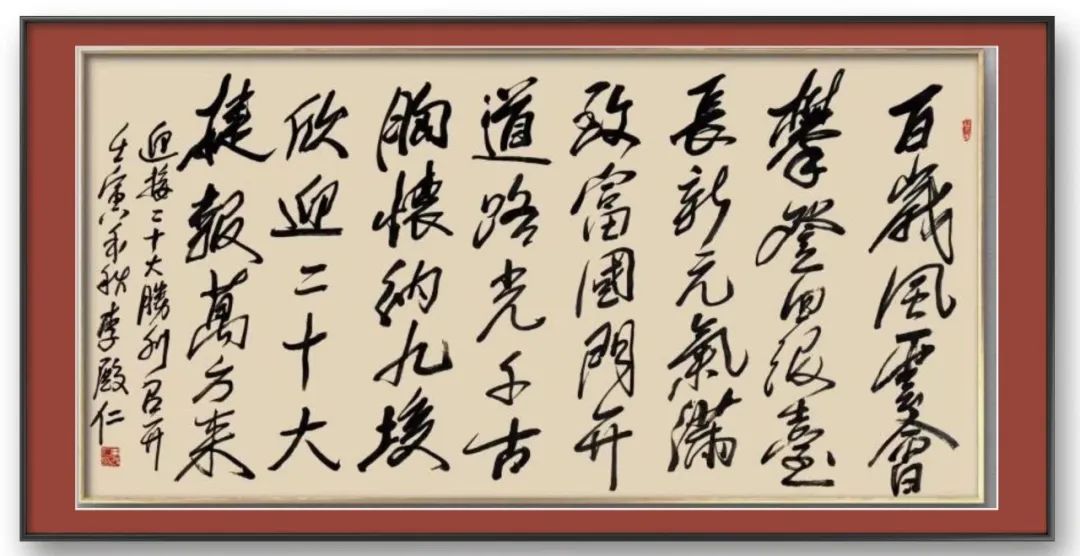 百歲风雲會
攀登臺
長新元氣滿
致富國門开
道路光千古
胸懷納九垓
欣迎二十大
捷報萬方来
迎接二十大勝利召开
壬寅年秋李殿仁